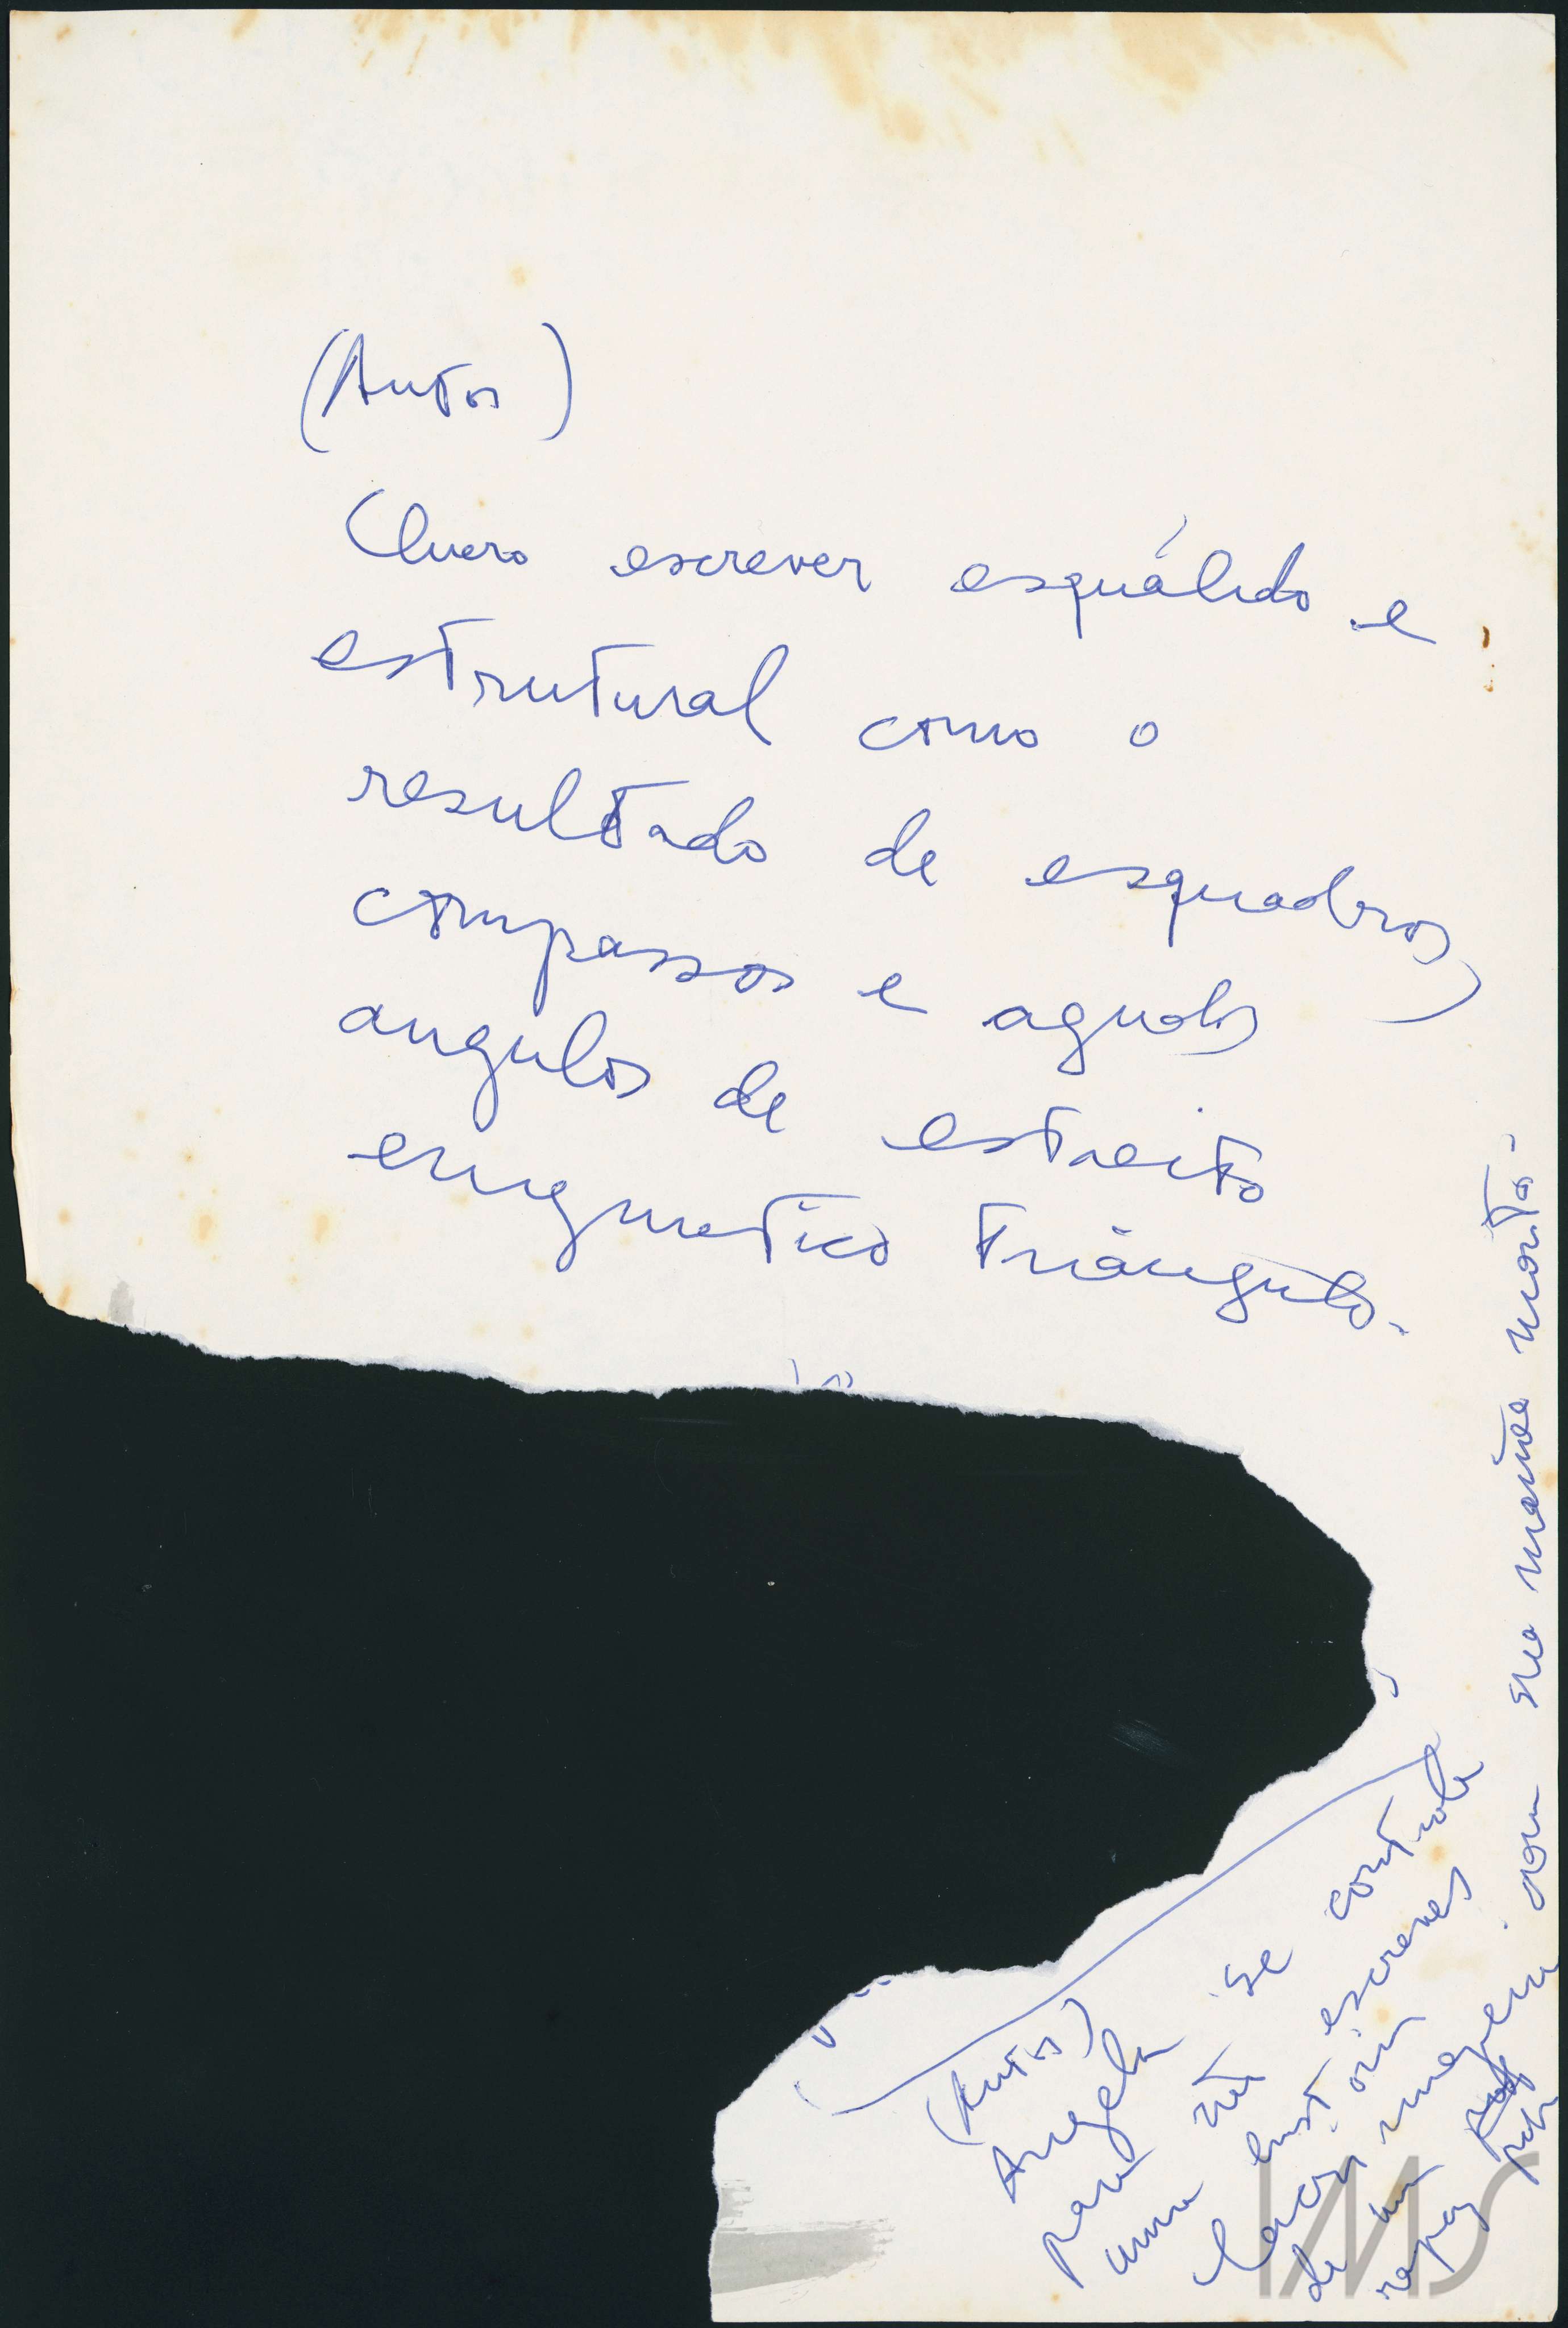 (Autor)
Quero escrever esquálido e
estrutural como o
resultado de esquadros,
compassos e agudos
angulos de estreito
enigmatico triângulo.
(Autor)
Angela se controla
para não escrever
uma história
lacrimogenia
de um rapaz
com sua mãe morta.
IMS